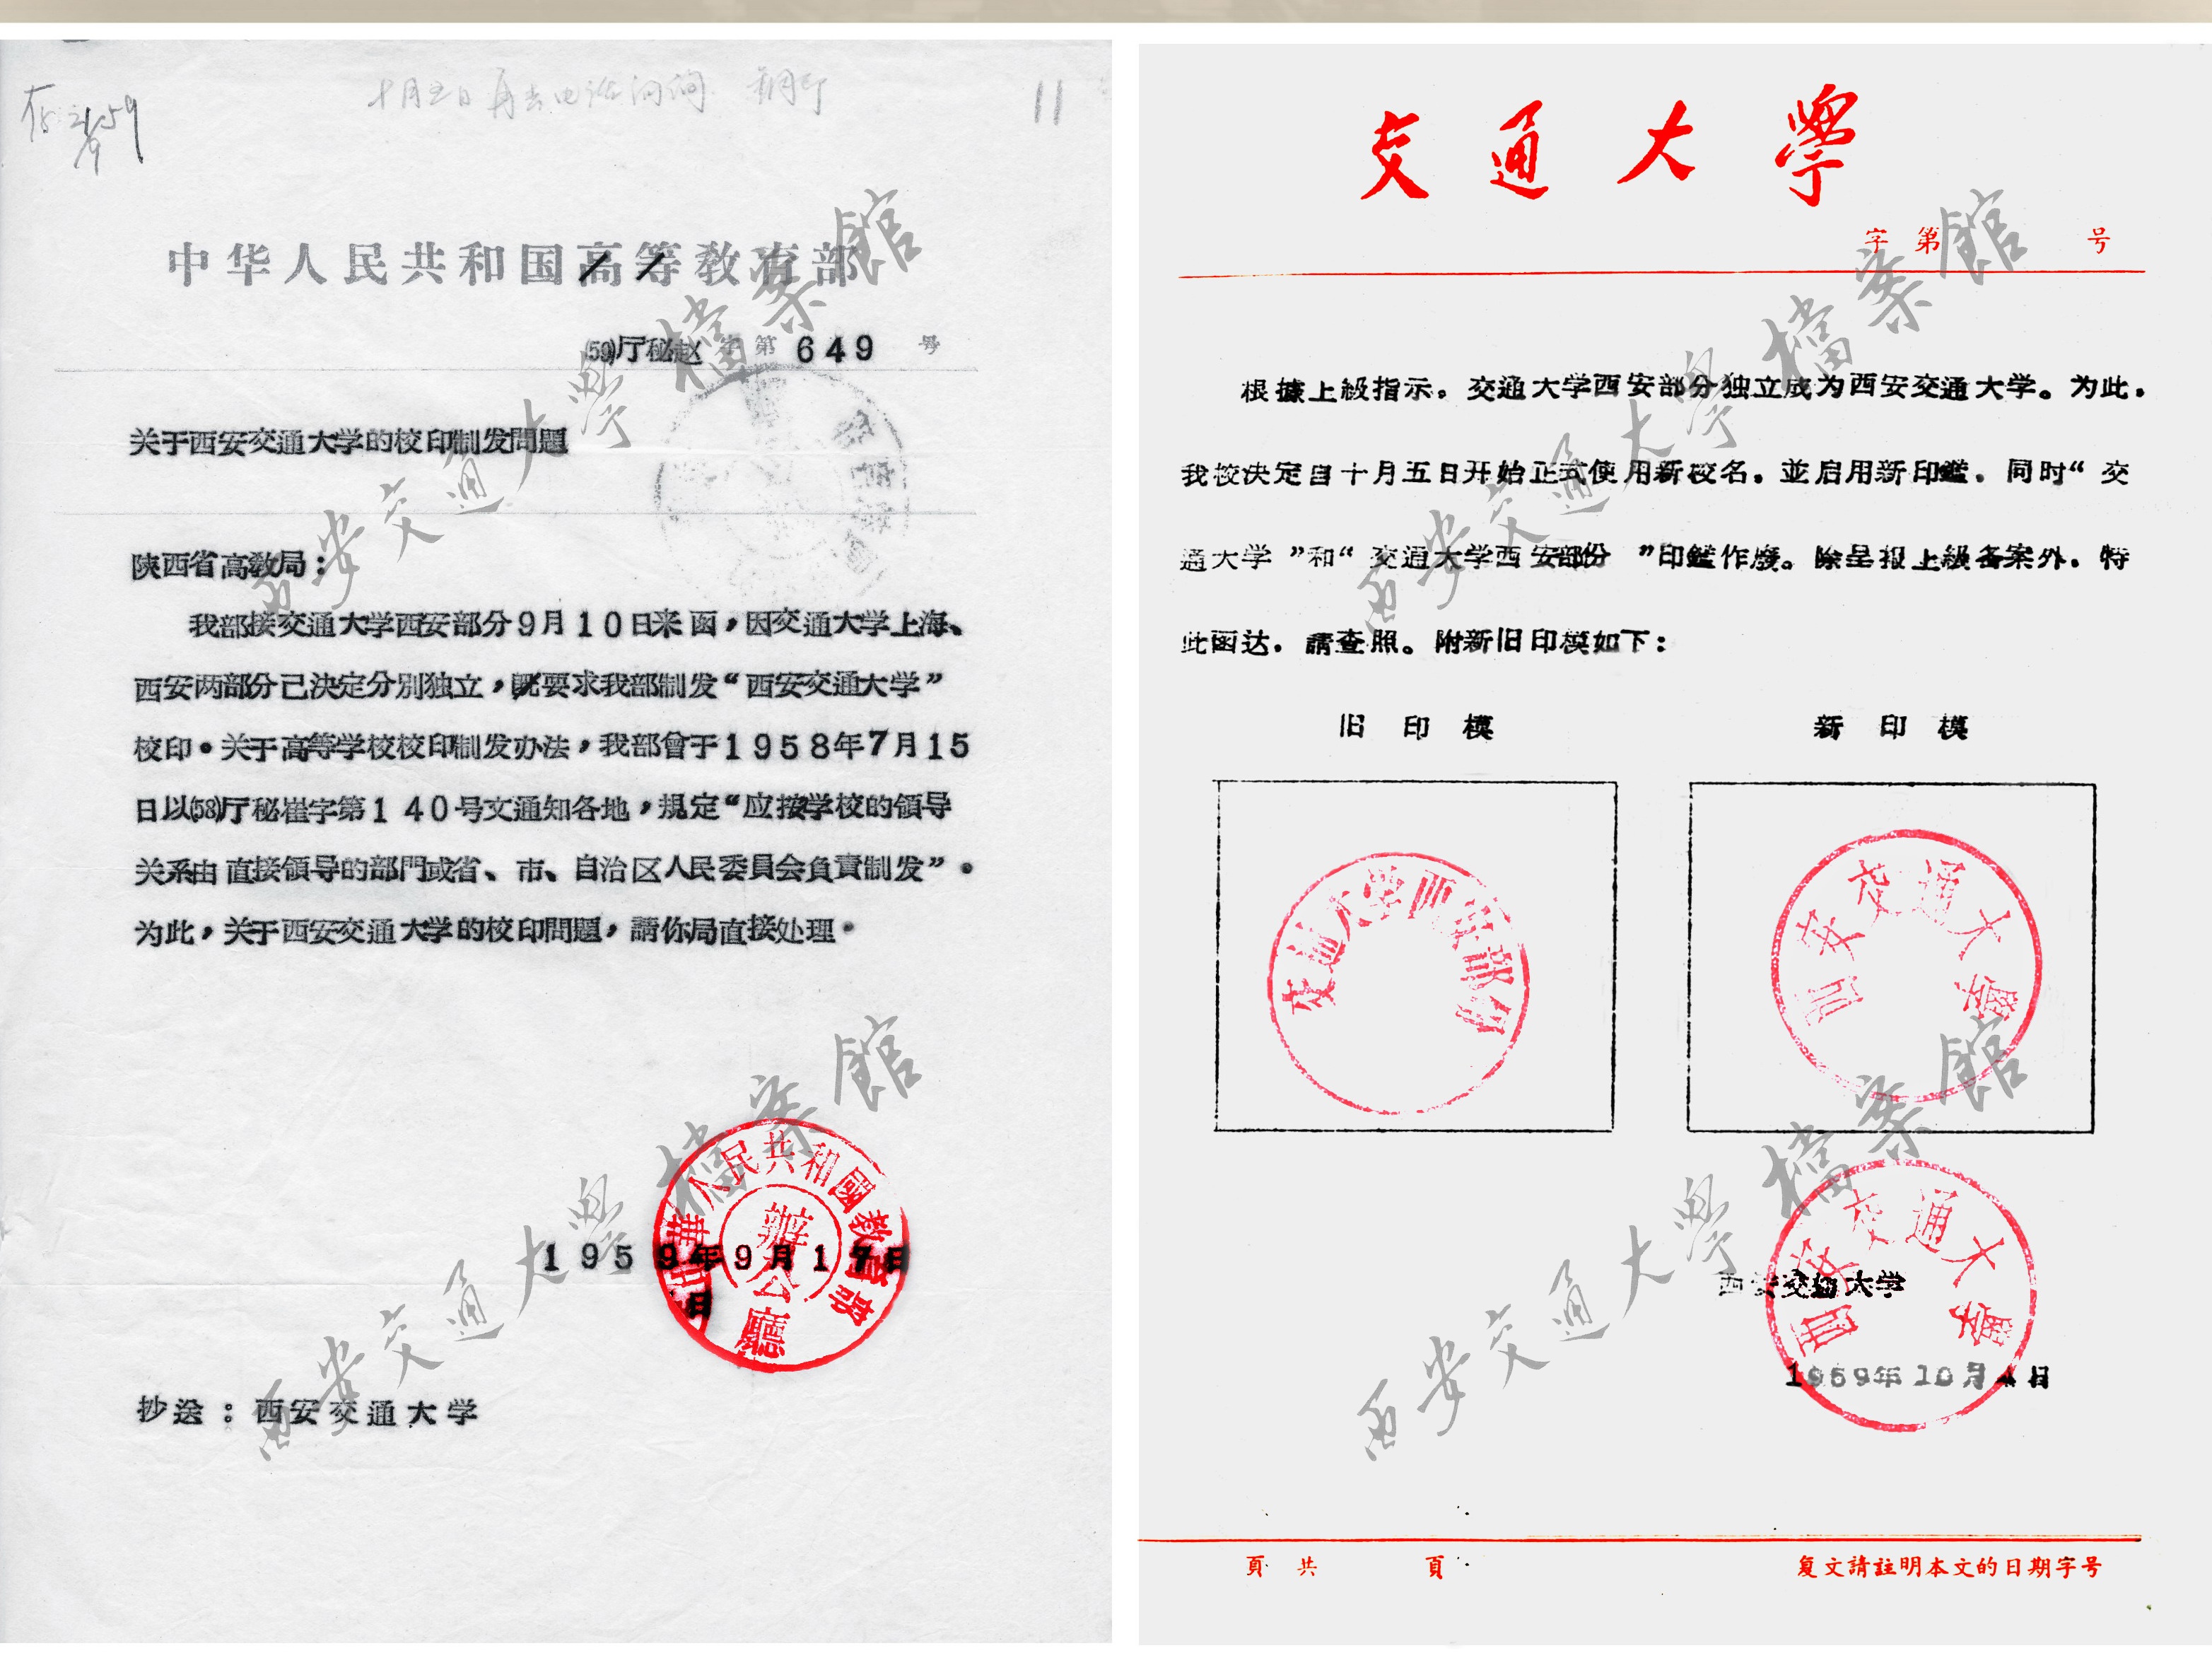 十月五日再去电话询问
11
中华人民共和国高等教育部
(59)厅秘赵字第649号
关于西安交通大学的校印制发問題
陕西省高教局：
我部接交通大学西安部分9月10日来函，因交通大学上海、
西安两部分已决定分别独立，既要求我部制发“西安交通大学”
校印。关于高等学校校印制发办法，我部曾于1958年7月15
日以(58)厅秘崔字第140号文通知各地，規定“应按学校的領导
关系由直接領导的部門或省、市、自治区人民委員会負責制发”。
为此，关于西安交通大学的校印問題，請你局直接处理。
中華人民共和國教育部
辦公廳
1959年9月17日
抄送：西安交通大学
西安交通大學檔案館
西安交通大學檔案館
交通大學
字第 号
根據上級指示。交通大学西安部分独立成为西安交通大学。为此.
我校决定自十月五日开始正式使用新校名.並启用新印鑑.同时“交
通大学”和“交通大学西安部份”印鑑作废。除呈报上級备案外.特
此函达.請查照。附新旧印模如下：
旧印模 新印模
交通大学西安部份
西安交通大學
西安交通大學
西安交通大学
1959年10月4日
頁共 頁 复文請註明本文的日期字号
西安交通大學檔案館
西安交通大學檔案館